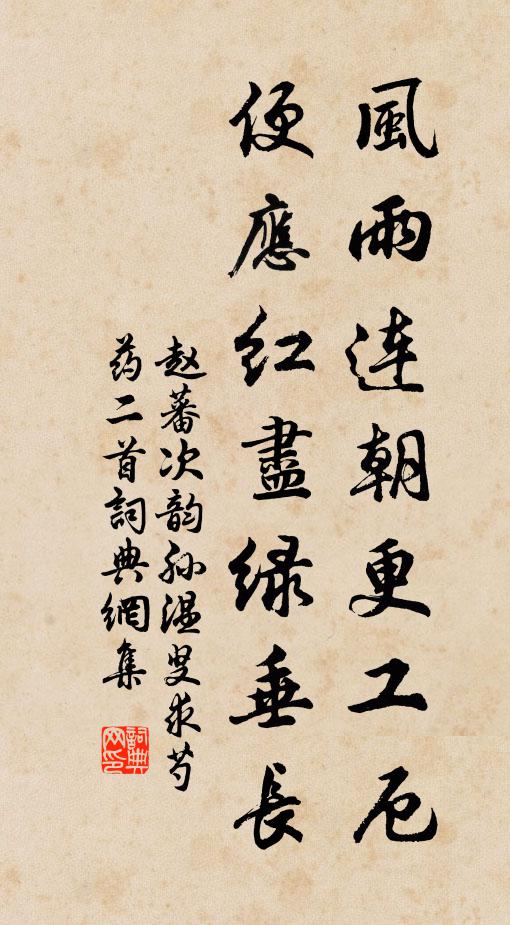 風雨连朝更工厄
便應红盡緑垂長
赵蕃次韵孙温叟求芍
药二首詞典網集
詞典网印